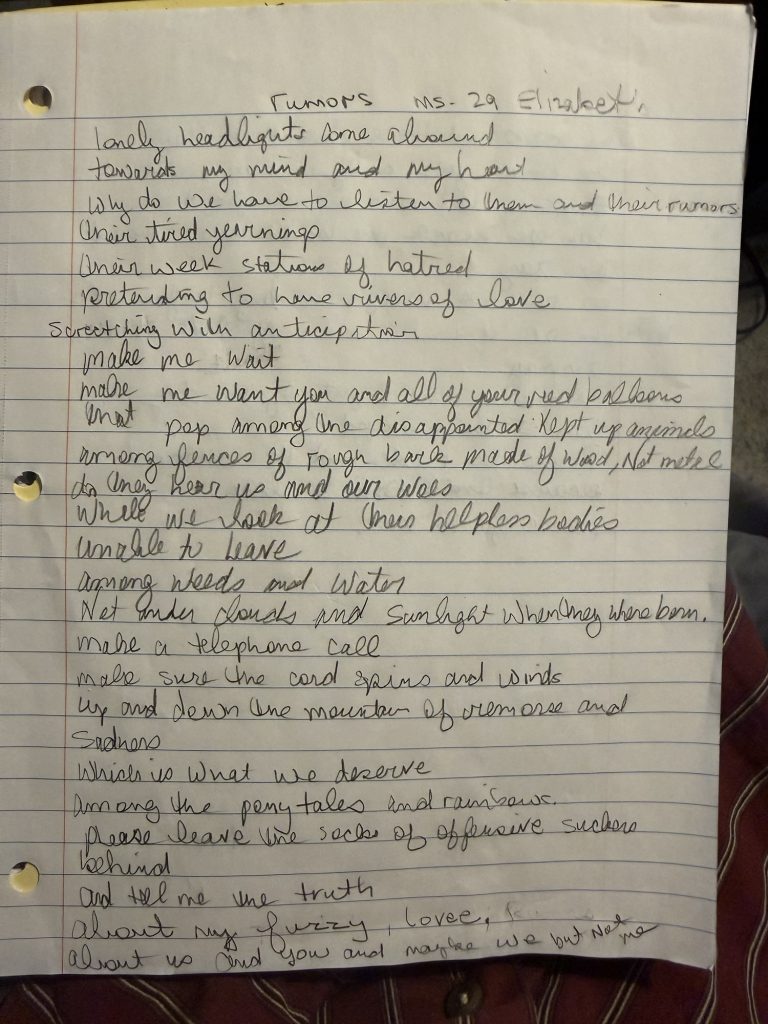 rumors ms-29 Elizabeth
lonely headlights come around
towards my mind and my heart
Why do we have to listen to them and their rumors
their tired yearnings
their week stations of hatred
pretending to have rivers of love
Screetching with anticipation
make me wait
make me want you and all of your red balloons
that pop among the disappointed kept up animels
among fences of rough bark made of wood, Not metel
do they hear us and our woes
While we look at their helpless bodies
unable to leave
among weeds and water
Not under clouds and sunlight when they where born.
make a telephone call
make sure the cord spins and winds
up and down the mountain of remorse and
sadness
Which is what we deserve
among the pony tales and rainbows.
please leave the sacks of offensive suckers
behind
and tell me the truth
about my fuzzy, lovee,
about us and you and maybe we but Not me